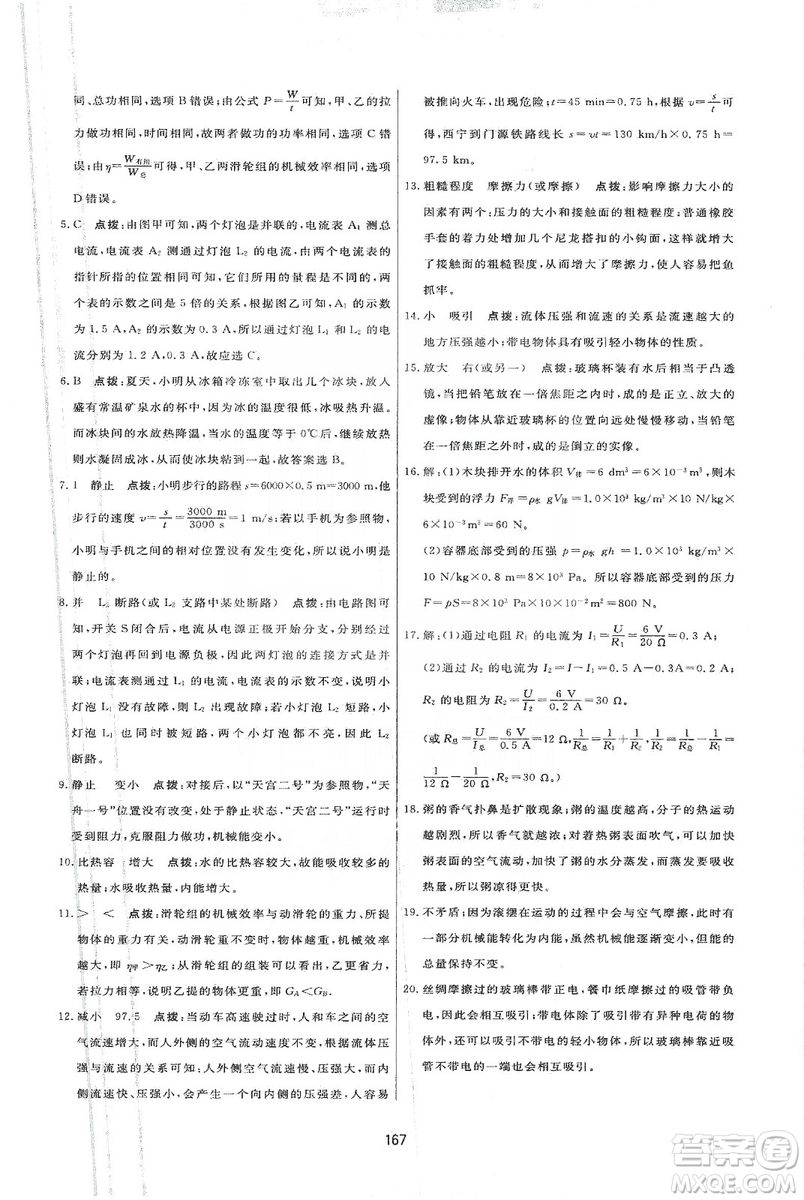 同、总功相同，选项 B 错误；由公式 P=W/t 可知，甲、乙的拉
力做功相同，时间相同，故两者做功的功率相同，选项 C 错
误；由η=W有用/W总可得，甲、乙两滑轮组的机械效率相同，选项
D 错误。
5. C 点拨：由图甲可知，两个灯泡是并联的，电流表 A₁ 测总
电流，电流表 A₂ 测通过灯泡 L₂ 的电流。由于两个电流表的
指针所指的位置相同可知，它们所用的量程是不同的，即两
个表的示数之间是 5 倍的关系，根据图乙可知，A₁ 的示数
为 1.5 A，A₂ 的示数为 0.3 A，所以通过灯泡 L₁ 和 L₂ 的电
流分别为 1.2 A，0.3 A。故选 C。
6. B 点拨：夏天，小明从冰箱冷冻室中取出几个冰块，放入
盛有常温矿泉水的杯中，因为冰的温度低，冰吸热升温。
而冰块间的水放热降温，当水的温度等于 0℃后，继续放热
则水凝固成冰，则冰块粘到一起，故答案选 B。
7. 1 静止 点拨：小明步行的路程 s=6000×0.5 m=3000 m，他
步行的速度 v=s/t=3000 m/3000 s=1 m/s；若以手机为参照物，
小明与手机之间的相对位置没有发生变化，所以小明是
静止的。
8. 并 L₂ 断路(或 L₂ 支路中某处断路) 点拨：由电路图可
知，开关 S 闭合后，电流从电源正极开始分支，分别经过两
个小灯泡后回到电源负极，因此两灯泡的连接方式是并
联。电流表测通过 L₁ 的电流，电流表的示数不变，说明小
灯泡 L₁ 没有故障，则 L₂ 出现故障；若小灯泡 L₂ 短路，小
灯泡 L₁ 也同时被短路，两个小灯泡都不亮，因此 L₂
断路。
9. 静止 变小 点拨：对接后，以“天宫二号”为参照物，“天
舟一号”位置没有改变，处于静止状态，“天宫二号”运行时
受到阻力，克服阻力做功，机械能变小。
10. 比热容 增大 点拨：水的比热容较大，故能吸收较多的
热量；水吸收热量，内能增大。
11. ＞ ＜ 点拨：滑轮组的机械效率与动滑轮的重力、所提
物体的重力有关，动滑轮重不变时，物体重力越大，效率
越大，即 η甲＞η乙；从滑轮组的组装可以看出，乙更省力，
若拉力相等，说明乙提的物体更重，即 G_A＜G_B。
12. 减小 97.5 点拨：当动车高速驶过时，人和车之间的空
气流速增大，而人外侧的空气流动速度不变，根据流体压
强与流速的关系可知：人外侧空气流速慢、压强大；而内
侧流速快、压强小，会产生一个向内侧的压强差，人容易
被推向火车，出现危险；t=45 min=0.75 h，根据 v=s/t可
得，西宁到门源铁路线长 s=vt=130 km/h×0.75 h=
97.5 km。
13. 粗糙程度 摩擦力(或摩擦) 点拨：影响摩擦力大小的
因素有两个：压力的大小和接触面的粗糙程度；普通橡胶
手套的着力处缝了许多尼龙搭扣的小钩面，这样增大
了接触面的粗糙程度，增大了摩擦力，使人容易把鱼
抓牢。
14. 小 吸引 点拨：流体压强和流速的关系是流速越大的
地方压强越小；带电物体具有吸引轻小物体的性质。
15. 放大 右(或另一) 点拨：玻璃杯装有水后相当于凸透
镜，当把铅笔放在一倍焦距之内时，成的是正立、放大的
虚像；物体从靠近玻璃杯的位置向远处慢慢移动，当铅笔
在一倍焦距之外时，成的是倒立的实像。
16. 解：(1)木块排开水的体积 V排=6 dm³=6×10⁻³ m³，则木
块受到的浮力 F浮=ρ水 gV排=1.0×10³ kg/m³×10 N/kg×
6×10⁻³ m³=60 N。
(2)容器底部受到的压强 p=ρ水 gh =1.0×10³ kg/m³×10
N/kg×0.8 m=8×10³ Pa，所以容器底部受到的压力
F=pS=8×10³ Pa×10⁻¹ m²=800 N。
17. 解：(1)通过电阻 R₁ 的电流为 I₁=U/R₁=6 V/20 Ω=0.3 A；
(2)通过 R₂ 的电流为 I₂=I－I₁=0.5 A－0.3 A=0.2 A，
R₂ 的电阻为 R₂=U/I₂=6 V/0.2 A=30 Ω。
(或 R总=U/I总=6 V/0.5 A=12 Ω，1/R总=1/R₁+1/R₂，1/R₂=1/R总－1/R₁=
1/12 Ω－1/20 Ω，R₂=30 Ω)
18. 粥的香气扑鼻是扩散现象；粥的温度越高，分子的热运动
越剧烈，所以香气就越浓；经常向粥表面吹气，可以加快
粥表面的空气流动，加快了粥的水分蒸发，而蒸发要吸收
热量，所以粥凉得更快。
19. 不矛盾；因为滚摆在运动的过程中会与空气摩擦，会有
一部分机械能转化为内能，虽然机械能逐渐变小，但能的
总量保持不变。
20. 丝绸摩擦过的玻璃棒带正电，餐巾纸摩擦过的吸管带负
电，因此会相互吸引；带电物体除了吸引带有异种电荷的物
体外，还可以吸引不带电的轻小物体，所以玻璃棒靠近吸
管不带电的一端也会相互吸引。
167
答案圈
MXQE.COM